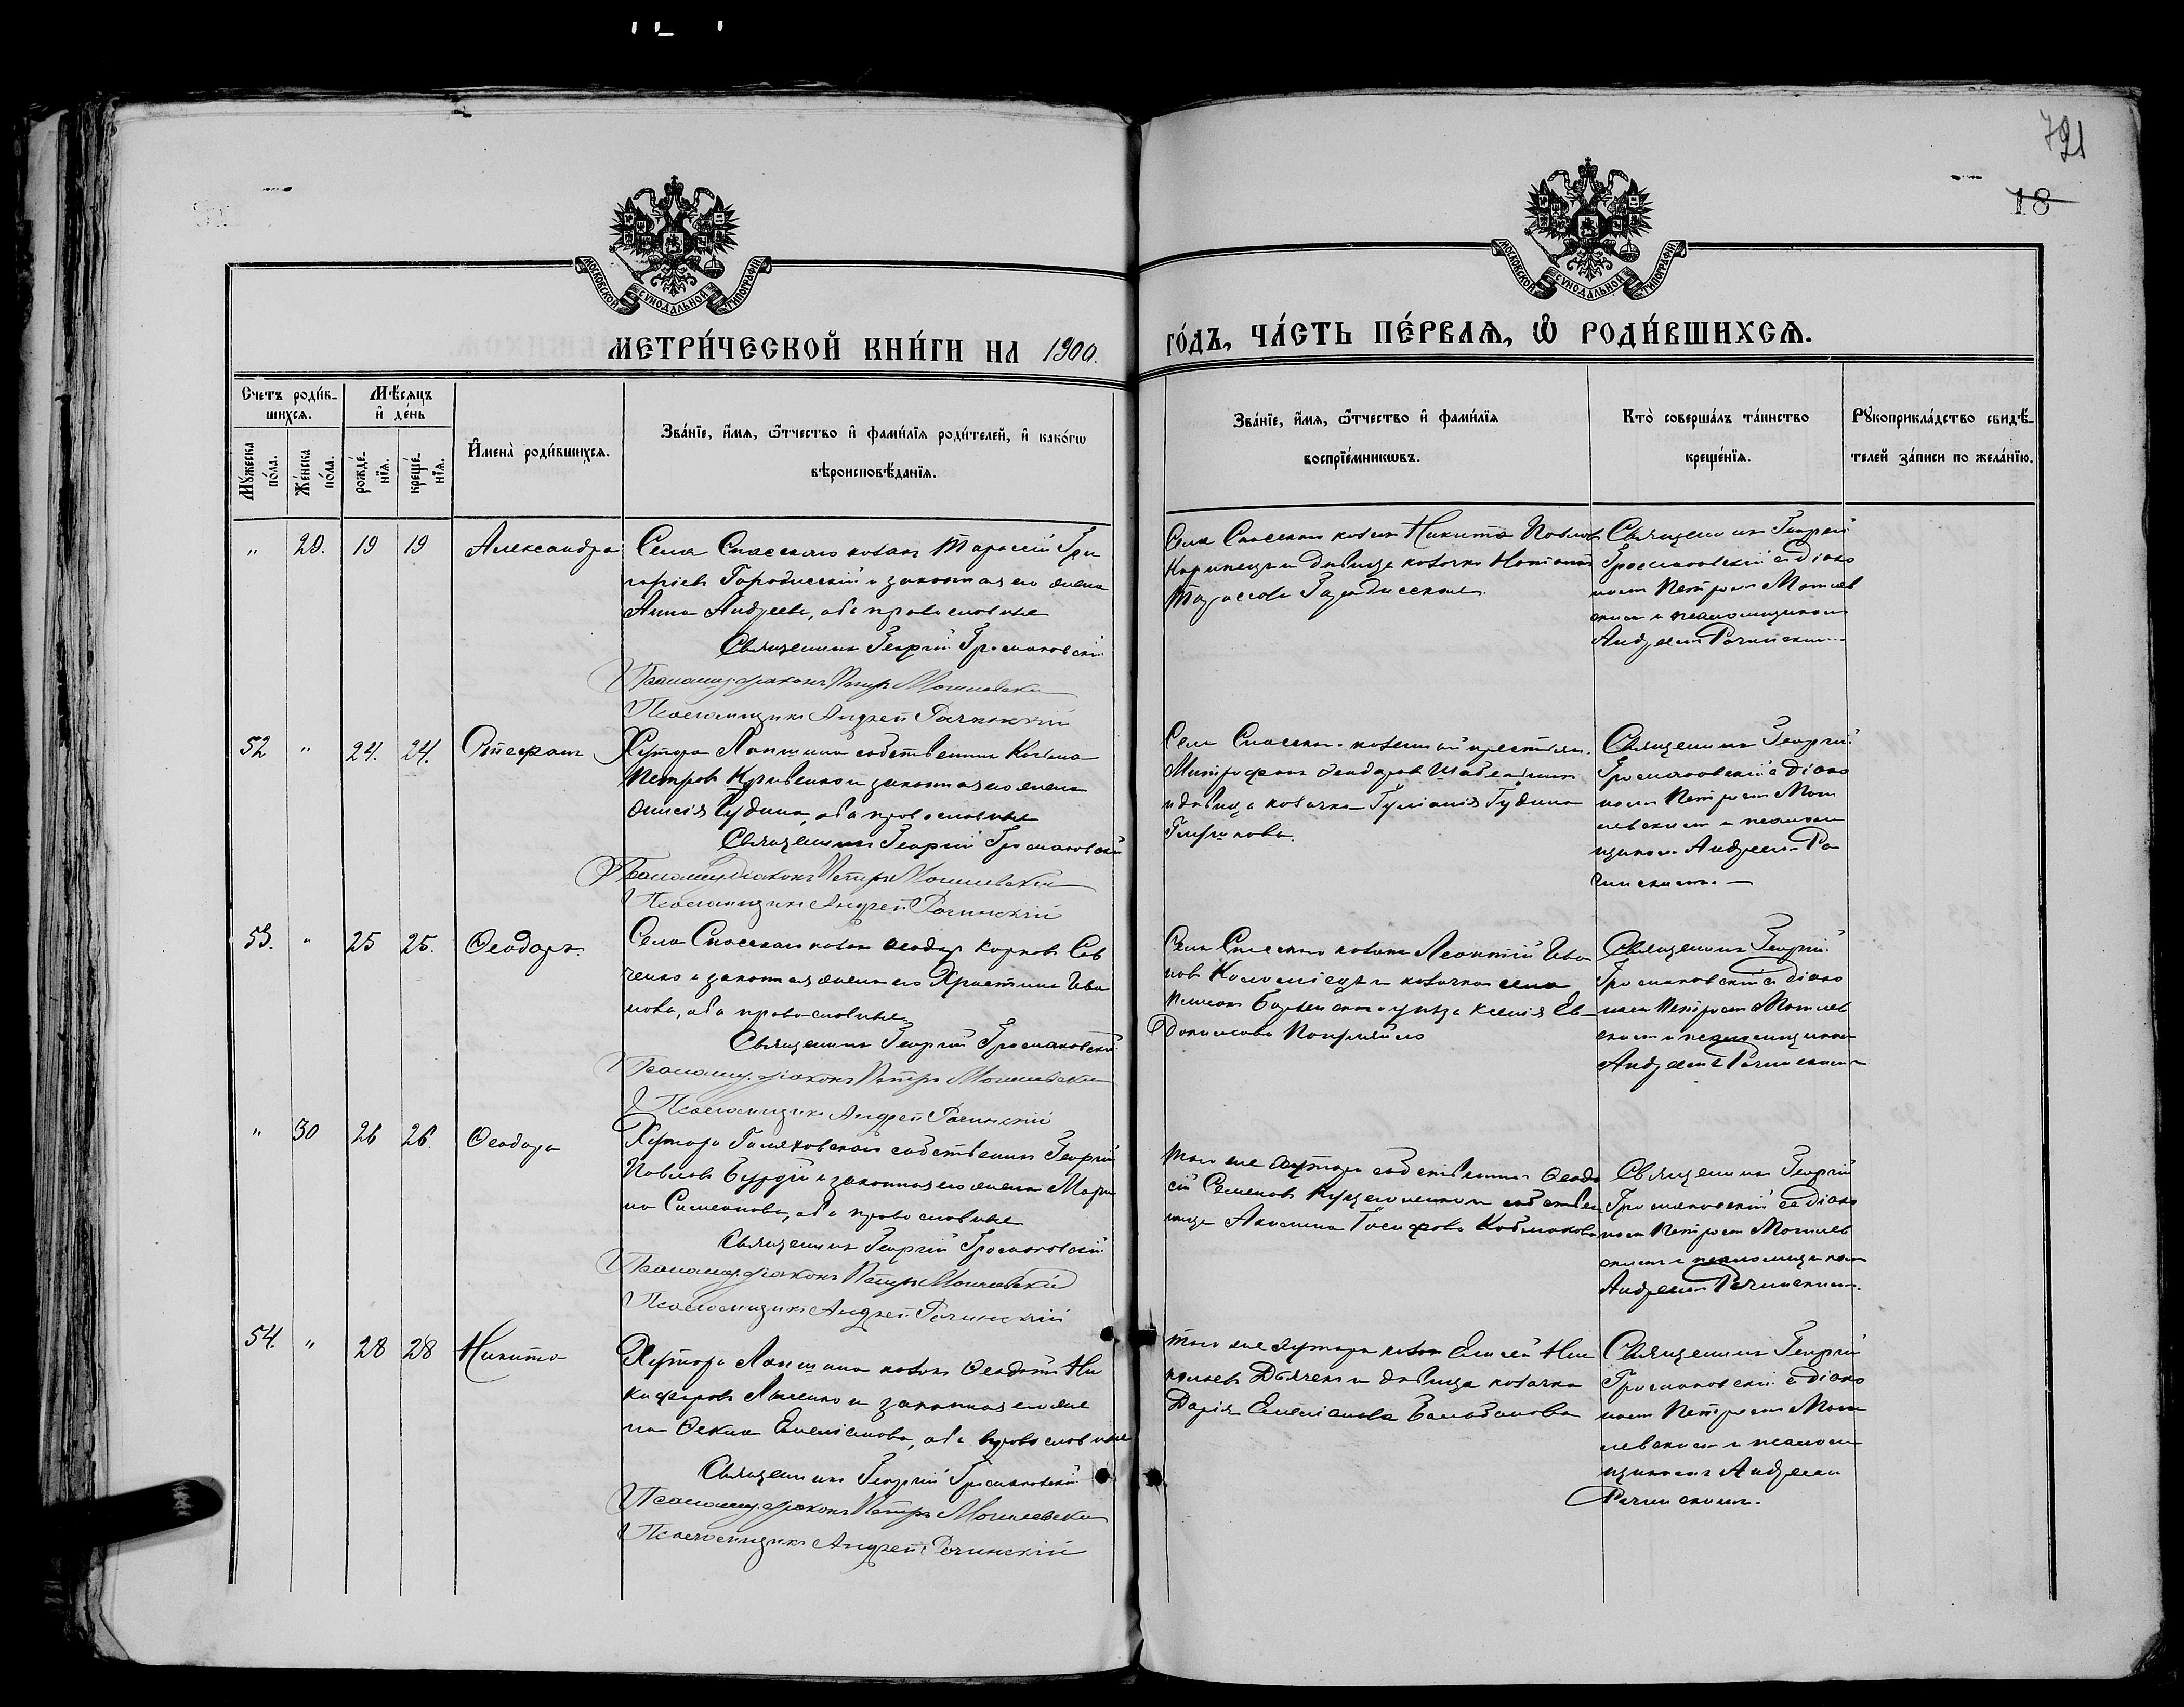 721
18
МОСКОВСКОЙ СѴНОДАЛЬНОЙ ТИПОГРАФІИ
МОСКОВСКОЙ СѴНОДАЛЬНОЙ ТИПОГРАФІИ
МЕТРИ́ЧЕСКОЙ КНИ́ГИ НА 1900.
ГО́ДЪ, ЧА́СТЬ ПЕ́РВАѦ, Ѡ҆ РОДИ́ВШИХСѦ.
Счетъ роди́в-
шихсѧ.
Мѣ́сѧцъ
и҆ де́нь
Мꙋ́жеска
по́ла.
Же́нска
по́ла.
рожде́-
нїѧ.
креще́-
нїѧ.
И҆мена̀ роди́вшихсѧ.
Зва́нїе, и҆́мѧ, ѻ҆́тчество и҆ фами́лїѧ роди́телей, и҆ како́гѡ
вѣроисповѣ́данїѧ.
Зва́нїе, и҆́мѧ, ѻ҆́тчество и҆ фами́лїѧ
воспрїе́мникѡвъ.
Кто̀ соверша́лъ та́инство
креще́нїѧ.
Рꙋкоприкла́дство свидѣ́-
телей за́писи по жела́нїю.
" 29. 19 19 Александра
Села Спасскаго козакъ Тарасій Гри
горіевъ Городисскій и законная его жена
Анна Андреева, оба православные
Священникъ Георгій Громаковскій
Псаломщ. діаконъ Петръ Могилевскій
Псаломщикъ Андрей Рачинскій
Села Спасскаго козакъ Никита Павловъ
и дѣвица козачка
Тарасова Городисская.
Священникъ Георгій
Громаковскій съ діако
номъ Петромъ Могилев
скимъ и псаломщикомъ
Андреемъ Рачинскимъ
52 " 24. 24. Стефанъ
Хутора Лапшина собственникъ Козьма
Петровъ Кривенко и законная его жена
Анисія Іудина, оба православные
Священникъ Георгій Громаковскій
Псаломщ. діаконъ Петръ Могилевскій
Псаломщикъ Андрей Рачинскій
Села Спасскаго
Митрофанъ Ѳеодоровъ
и дѣвица козачка Іуліанія Іудина
Священникъ Георгій
Громаковскій съ діако
номъ Петромъ Моги
левскимъ и псалом
щикомъ Андреемъ Ра
чинскимъ. —
53. " 25 25. Ѳеодоръ.
Села Спасскаго козакъ Ѳеодоръ Карповъ Сав
ченко и законная жена его Христина Ива
нова, оба православные
Священникъ Георгій Громаковскій
Псаломщ. діаконъ Петръ Могилевскій
Псаломщикъ Андрей Рачинскій
Села Спасскаго козакъ Леонтій Ива
новъ Коломіецъ и козачка села
уѣзда Ксенія Ев
докимова
Священникъ Георгій
Громаковскій съ діако
номъ Петромъ Могилев
скимъ и псаломщикомъ
Андреемъ Рачинскимъ
" 30 26 26. Ѳеодора
Хутора собственникъ Георгій
Павловъ и законная его жена Мари
на Симеонова, оба православные
Священникъ Георгій Громаковскій
Псаломщ. діаконъ Петръ Могилевскій
Псаломщикъ Андрей Рачинскій
Того же хутора собственникъ Ѳеодо
сій Семеновъ и собствен
ница Акилина Іосифова
Священникъ Георгій
Громаковскій съ діако
номъ Петромъ Могилев
скимъ и псаломщикомъ
Андреемъ Рачинскимъ.
54. " 28 28 Никита
Хутора Лапшина козакъ Ѳеодотъ Ни
кифоровъ и законная его же
на Ѳекла Емеліанова, оба православные
Священникъ Георгій Громаковскій
Псаломщ. діаконъ Петръ Могилевскій
Псаломщикъ Андрей Рачинскій
Того же хутора козакъ Елисей
и дѣвица козачка
Дарія Емеліанова Балабанова
Священникъ Георгій
Громаковскій съ діако
номъ Петромъ Моги
левскимъ и псалом
щикомъ Андреемъ
Рачинскимъ.